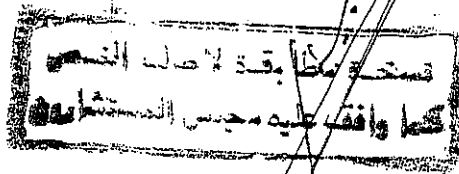 نسخة مطابقة لأصل النص
كما وافق عليه مجلس المستشارين